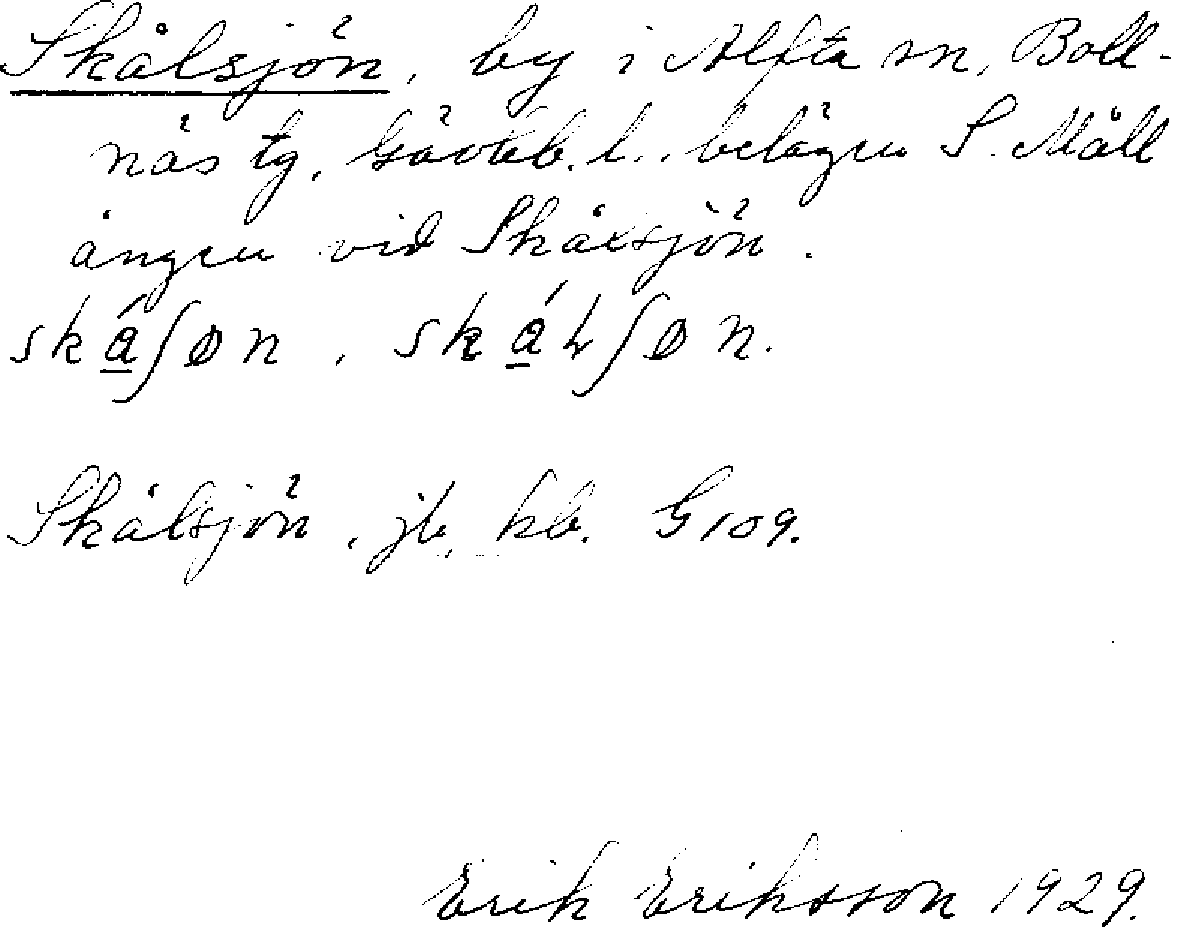 Skålsjön, by i Alfta sn, Boll-
näs tg, Gävleb. l., belägen S. Måll
ången vid Skålsjön.
ská̠ʃøn, ská̠ɫʃøn.
Skålsjön, jb, kb. G 109.
Erik Eriksson 1929.